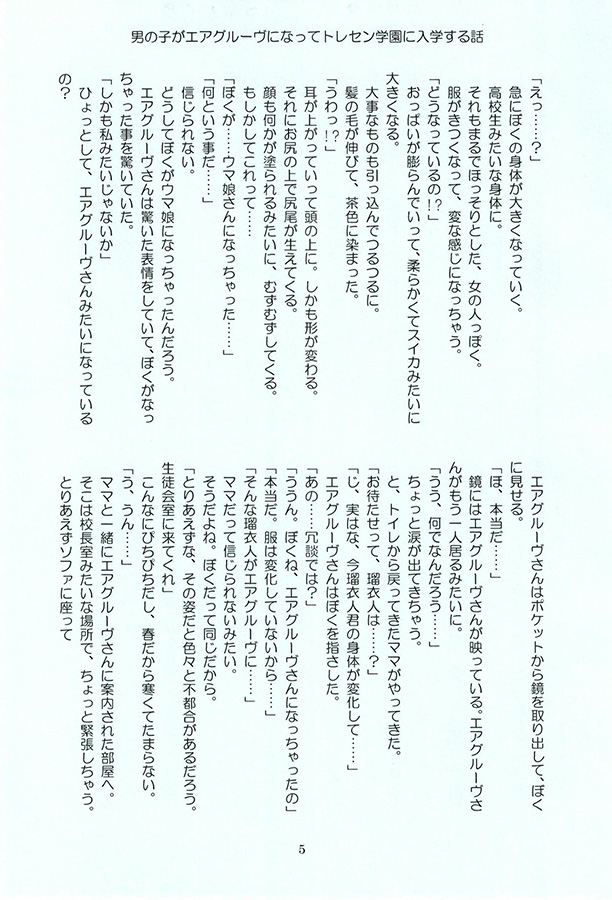 男の子がエアグルーヴになってトレセン学園に入学する話
「えっ……？」
急にぼくの身体が大きくなっていく。
高校生みたいな身体に。
それもまるでほっそりとした、女の人っぽく。
服がきつくなって、変な感じになっちゃう。
「どうなっているの!?」
おっぱいが膨らんでいって、柔らかくてスイカみたいに
大きくなる。
大事なものも引っ込んでつるつるに。
髪の毛が伸びて、茶色に染まった。
「うわっ!?」
耳が上がっていって頭の上に。しかも形が変わる。
それにお尻の上で尻尾が生えてくる。
顔も何かが塗られるみたいに、むずむずしてくる。
もしかしてこれって……
「ぼくが……ウマ娘さんになっちゃった……」
「何という事だ……」
信じられない。
どうしてぼくがウマ娘になっちゃったんだろう。
エアグルーヴさんは驚いた表情をしていて、ぼくがなっ
ちゃった事を驚いていた。
「しかも私みたいじゃないか」
ひょっとして、エアグルーヴさんみたいになっている
の？
エアグルーヴさんはポケットから鏡を取り出して、ぼく
に見せる。
「ほ、本当だ……」
鏡にはエアグルーヴさんが映っている。エアグルーヴさ
んがもう一人居るみたいに。
「うう、何でなんだろう……」
ちょっと涙が出てきちゃう。
と、トイレから戻ってきたママがやってきた。
「お待たせって、瑠衣人は……？」
「じ、実はな、今瑠衣人君の身体が変化して……」
エアグルーヴさんはぼくを指さした。
「あの……冗談では？」
「ううん。ぼくね、エアグルーヴさんになっちゃったの」
「本当だ。服は変化していないから……」
「そんな瑠衣人がエアグルーヴに……」
ママだって信じられないみたい。
そうだよね。ぼくだって同じだから。
「とりあえずな、その姿だと色々と不都合があるだろう。
生徒会室に来てくれ」
こんなにぴちぴちだし、春だから寒くてたまらない。
「う、うん……」
ママと一緒にエアグルーヴさんに案内された部屋へ。
そこは校長室みたいな場所で、ちょっと緊張しちゃう。
とりあえずソファに座って
5